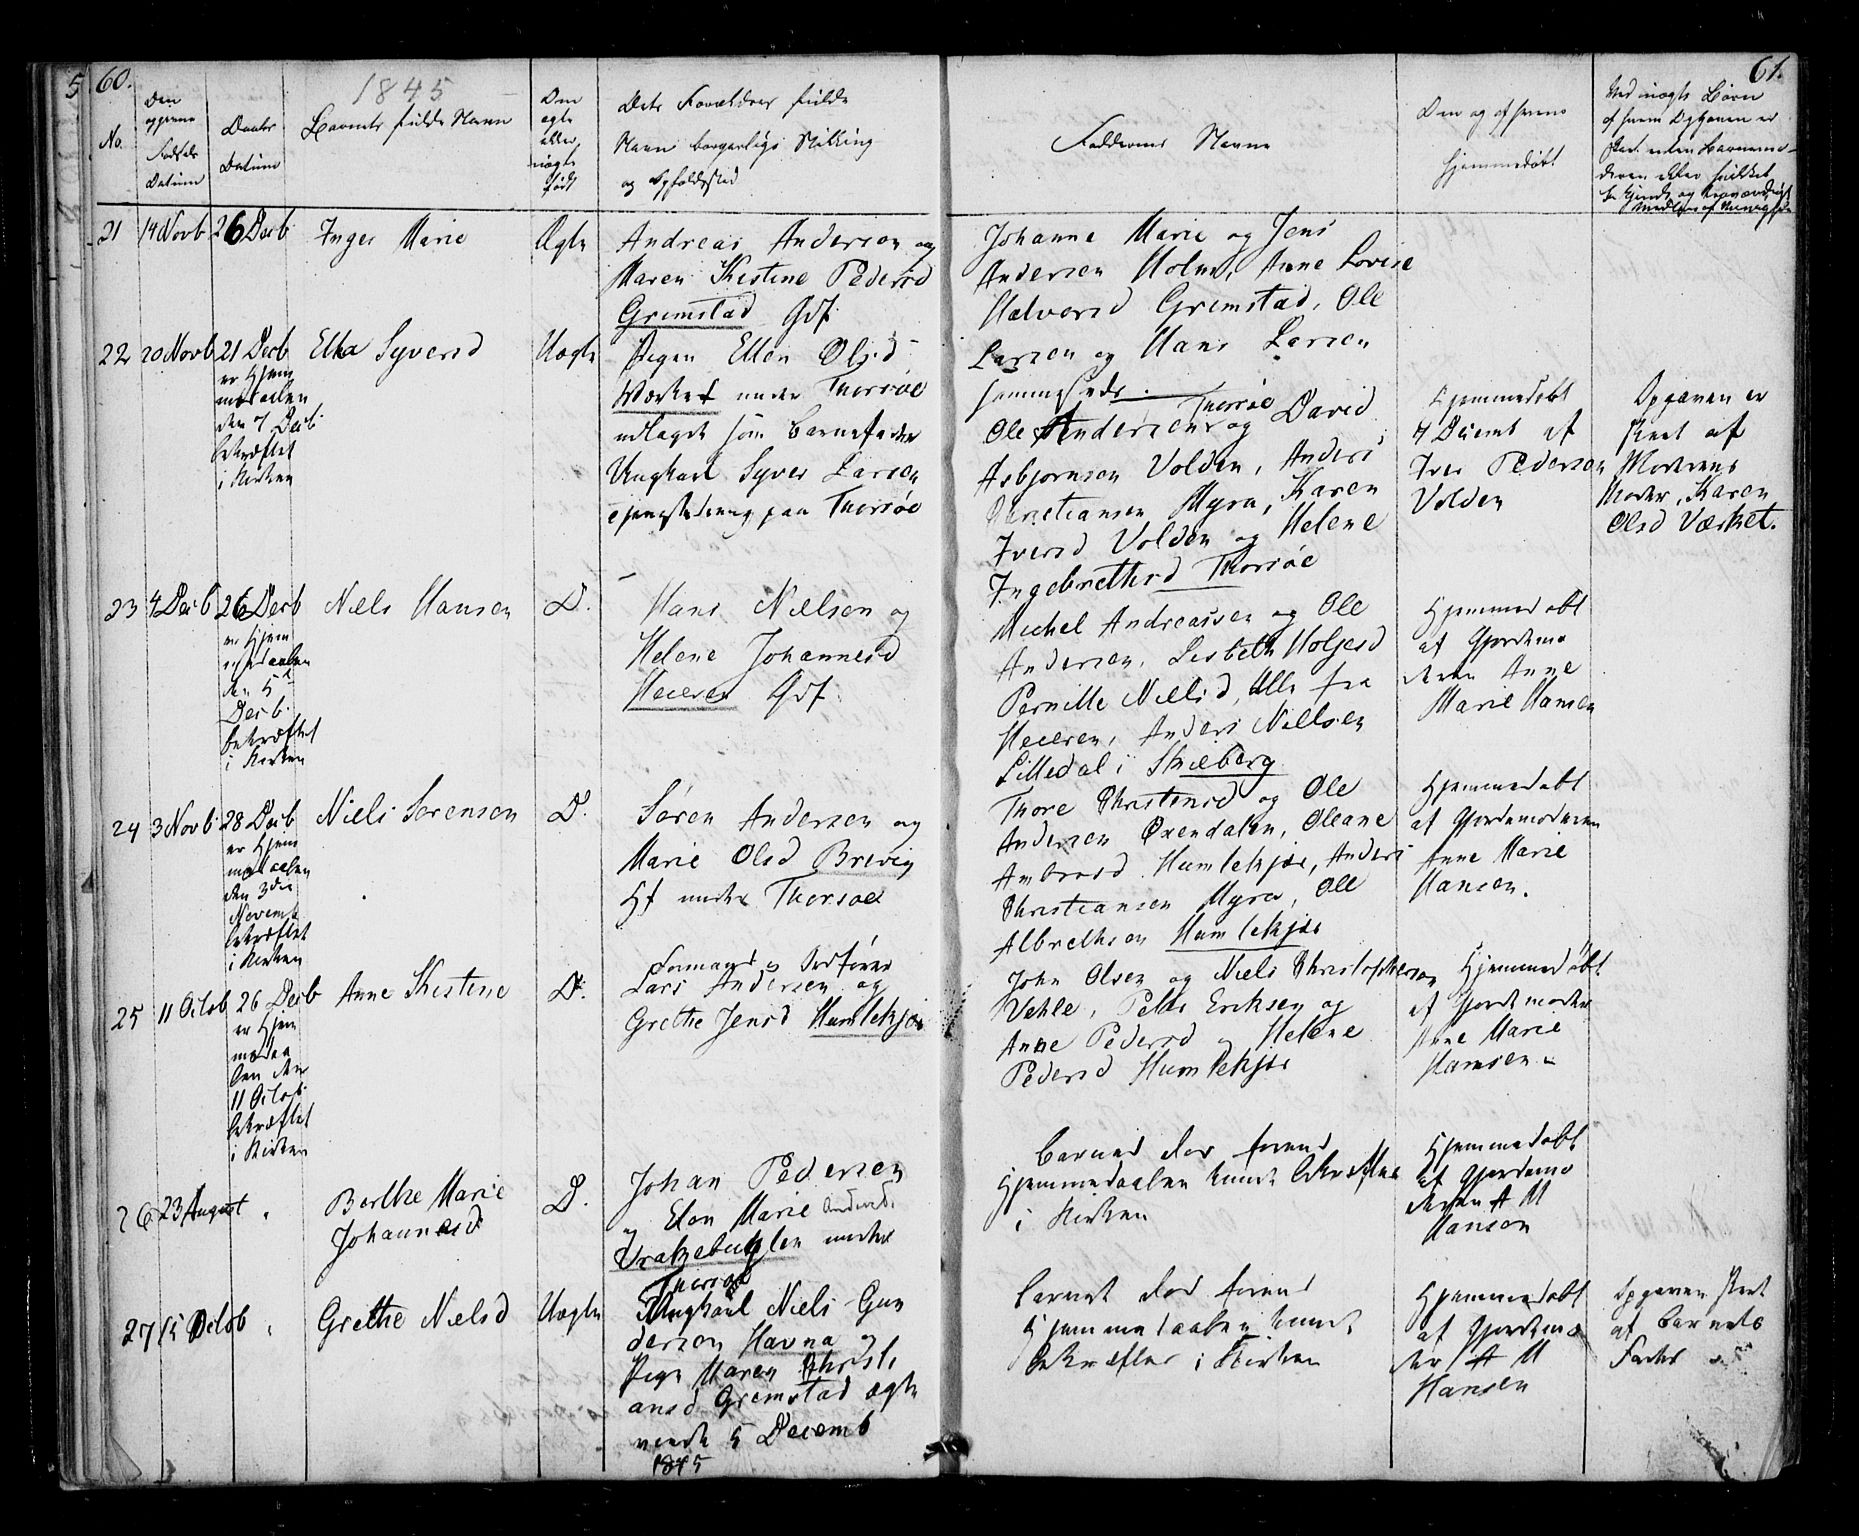 60.
1845
61.
No.
Den
opgivne
Fødsels
Datum
Daabs
Datum
Barnets fulde Navn
Den
ægte
eller
uægte
født
Dets Forældres fulde
Navn borgerlige Stilling
og Opholdssted
Faddernes Navne
Den og af hvem
hjemmedøbt
Ved uægte Børn
af hvem Opgaven er
skeet
21 14 Novb 26 Decb Inger Marie Ægte
Andreas Andersen og
Maren Kistine Pedersd
Grimstad Gdf
Johanne Marie og Jens
Andersen Holm, Anne Lovise
Halvorsd Gremstad, Ole
Larsen og Hans Larsen
sammesteds
22 20 Novb 21 Decb
er Hjem
medaaben
den 7 Decb
bekræftet
i Kirken
Syversd Uægte
Pigen Ellen Olsd
Værket under Thorsøe
udlagt som Barnefader
Ungkarl Syver Larsen
tjenestedreng paa Thorsøe
Thorsøe
Ole Andersen og David
Asbjornsen Volden, Anders
Christiansen Myra, Karen
Iversd Volden og Helene
Ingebrethsd Thorsøe
Hjemmedøbt
7 Decemb af
Iver Pedersen
Volden
Opgaven er
skeet af
Moderens
Moder, Karen
Olsd Værket.
23 4 Decb 26 Decb
er Hjem
medaaben
den 5
Decb.
bekræftet
i Kirken
Niels Hansen D.
Hans Nielsen og
Helene Johannesd
Heieren Gdf
Michel Andreassen og Ole
Andersen, Lisbeth Holjersd
Pernille Nielsd, Alle fra
Heieren, Anders Nielsen
Lilledal i Skieberg
Hjemmedøbt
af Gjordemo
deren Anne
Marie Hansen
24 3 Novb 28 Decb
er Hjem
medaaben
den 3die
Novemb
bekræftet
i Kirken
Niels Sørensen D.
Søren Andersen og
Marie Olsd Brevig
Hf under Thorsøe
Thore Christensd og Ole
Andersen Oxendalen, Oleane
Ambrosd Humlekjær, Anders
Christiansen Myra, Ole
Albrethsen Humlekjær
Hjemmedøbt
af Gjordemoderen
Anne Marie
Hansen.
25 11 Octob 26 Decb
er Hjem
medaa
ben den
11 Octob
bekræftet
i Kirken
Anne Kistine D.
Formand og
Lars Andersen og
Grethe Jensd Humlekjær
John Olsen og Niels Christophersen
Vehle, Peder Eriksen og
Anne Pedersd og Helene
Pedersd Humlekjær
Hjemmedøbt
af Gjordemoder
Anne Marie
Hansen
26 23 August
Berthe Marie
Johannesd
D.
Johan Pedersen
og Elen Marie Andersd.
under
Thorsøe
Barnet døe forend
Hjemmedaaben kunde bekræftes
i Kirken
Hjemmedøbt
af Gjordemo
deren A M
Hansen
27 15 Octob Grethe Nielsd Uægte
Ungkarl Niels Gun
dersen Havna og
Pige Maren Christi
ansd Gremstad ægte
viede 5 Decemb
1845
Barnet døe forend
Hjemmedaaben kunde
bekræftes i Kirken
Hjemmedøbt
af Gjordemo
der A M
Hansen
Opgaven skeet
af Barnets
Fader